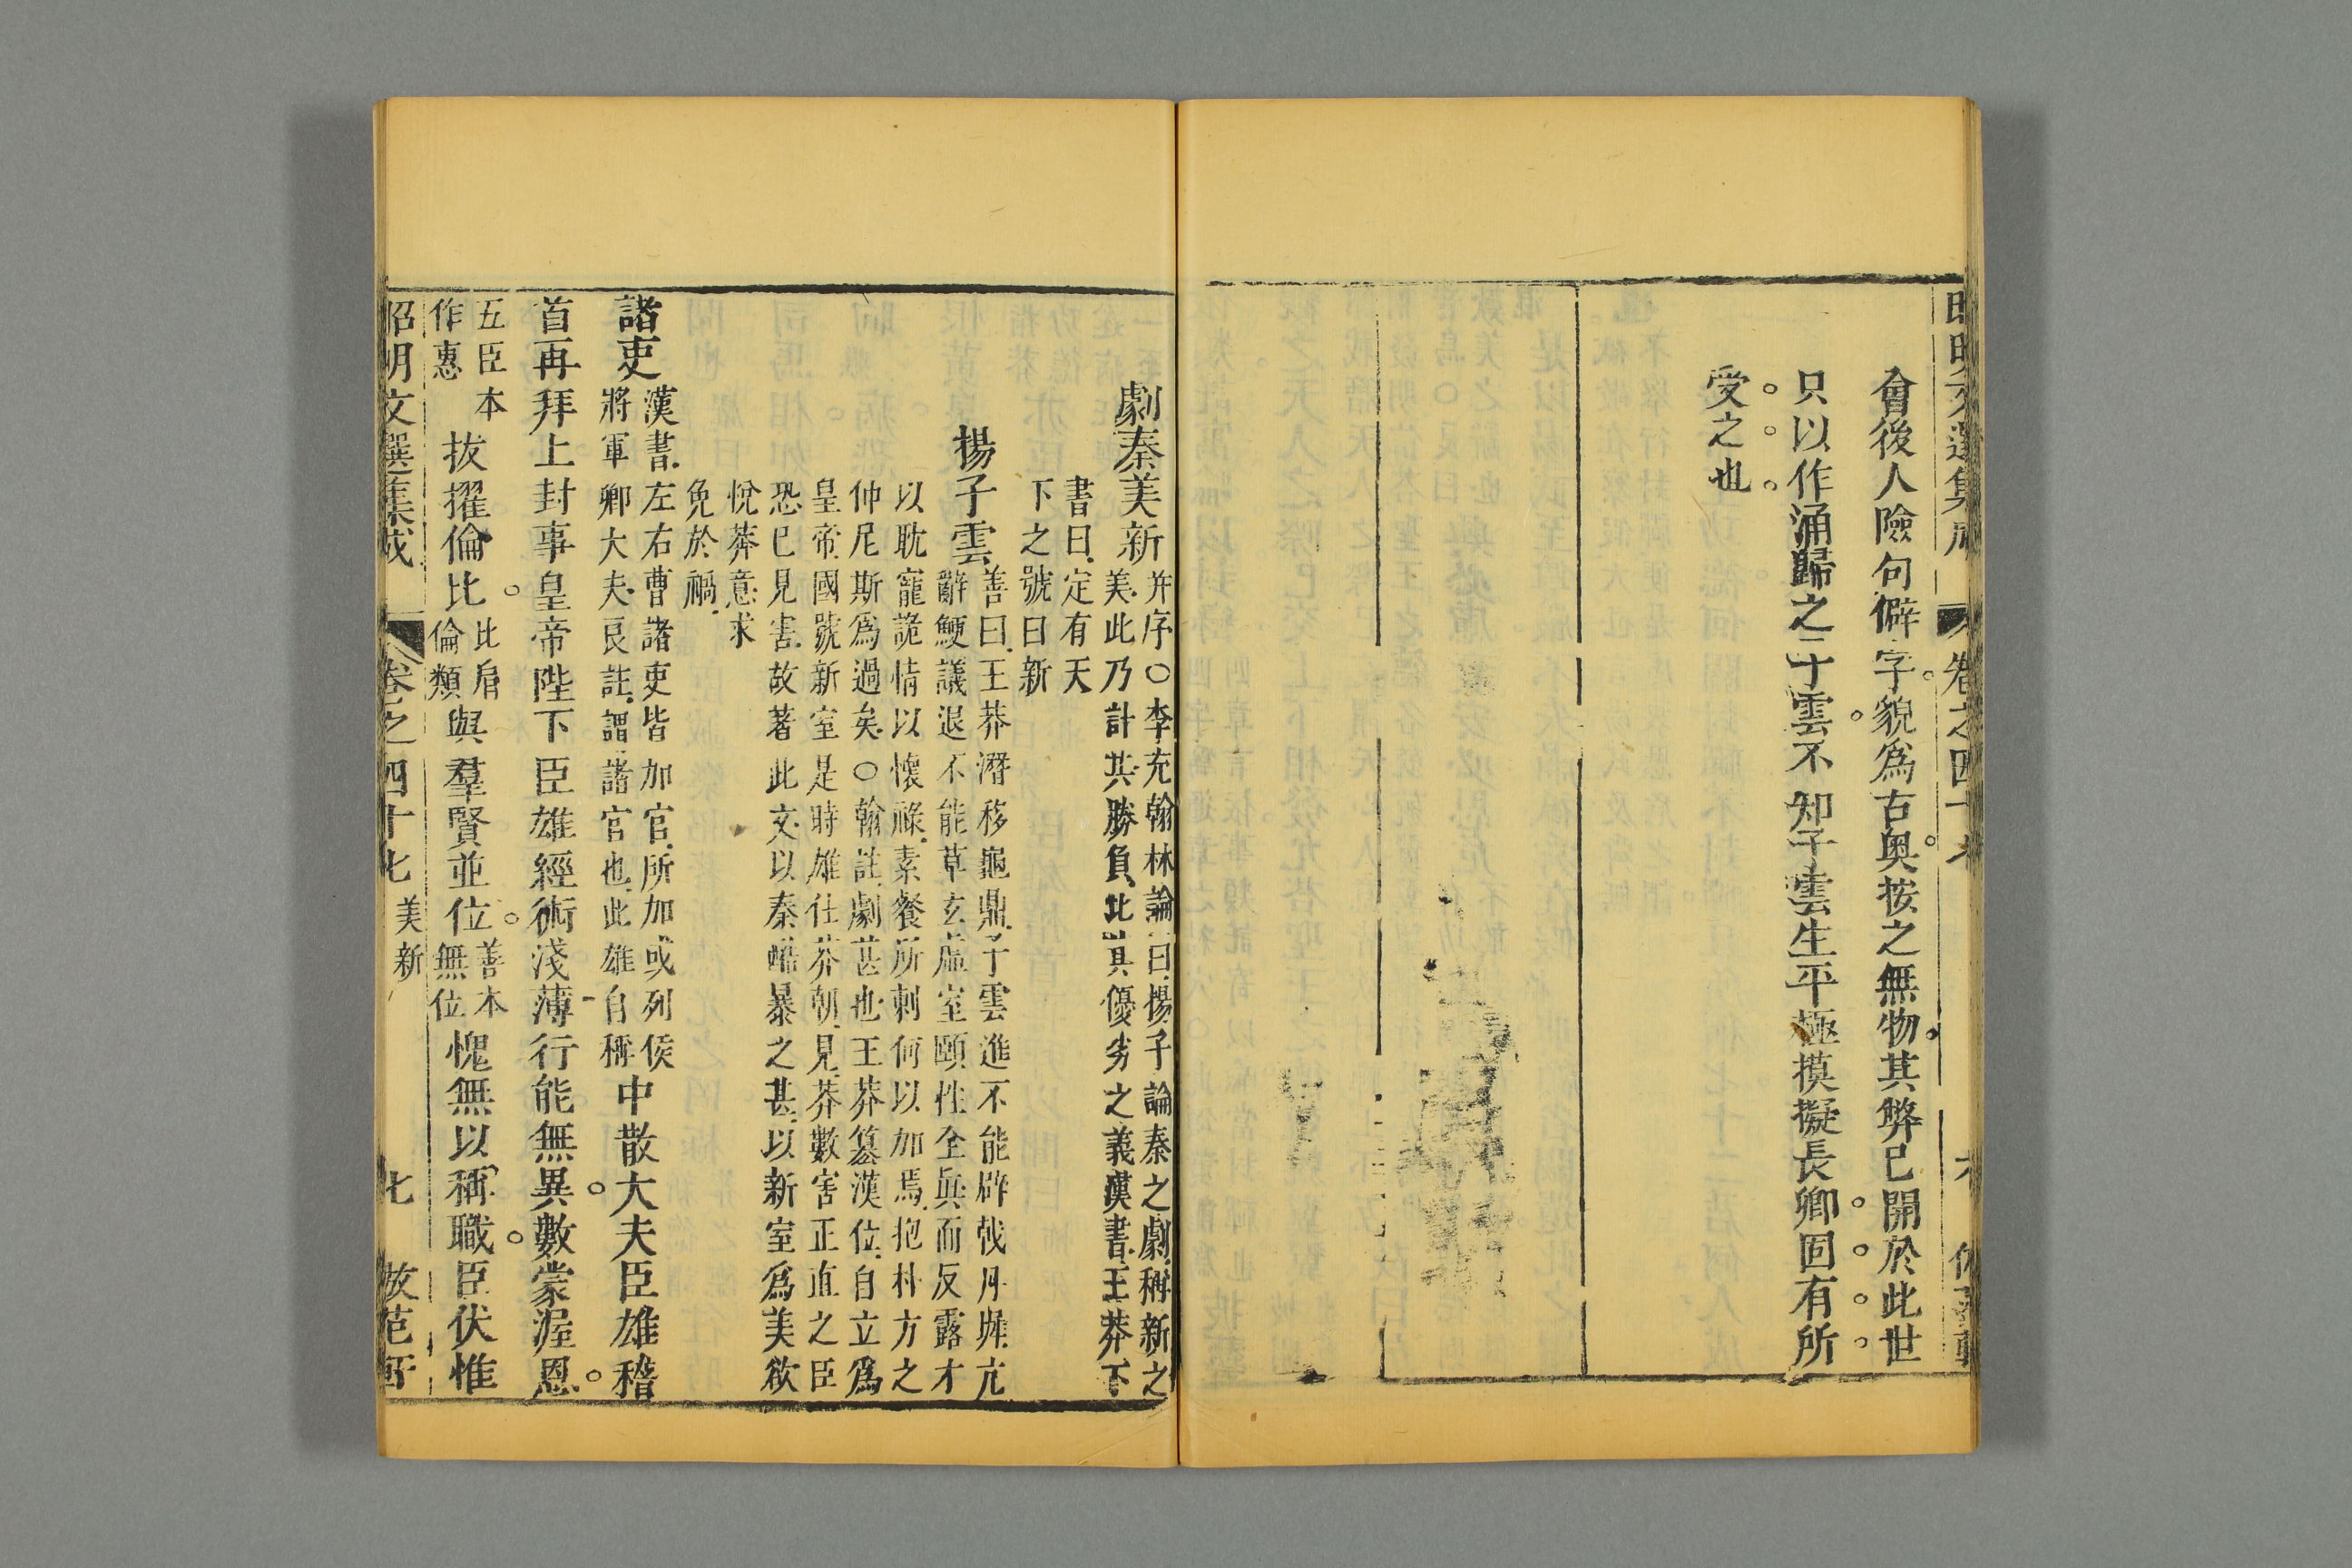 會後人險句僻字貌爲古奧按之無物其弊已開於此世
只以作涌歸之子雲不知子雲生平極摸擬長卿固有所
受之也
劇秦美新
并序○李充翰林論曰揚子論秦之劇稱新之
美此乃計其勝負比其優劣之義漢書王莽下
書曰定有天
下之號曰新
揚子雲
善曰王莽潛移龜鼎子雲進不能辟戟丹墀亢
辭鯁議退不能草玄虛室頤性全眞而反露才
以耽寵詭情以懷祿素餐所刺何以加焉抱朴方之
仲尼斯爲過矣○翰註劇甚也王莽篡漢位自立爲
皇帝國號新室是時雄仕莽朝見莽數害正直之臣
恐已見害故著此文以秦酷暴之甚以新室爲美欲
悅莽意求
免於禍
諸吏
漢書左右曹諸吏皆加官所加或列侯
將軍卿大夫良註謂諸官也此雄自稱
中散大夫臣雄稽
首再拜上封事皇帝陛下臣雄經術淺薄行能無異數蒙渥恩
五臣本
作惠
拔擢倫比
比肩
倫類
與羣賢並位
善本
無位
愧無以稱職臣伏惟
昭明文選集成
卷之四十七
美新
七